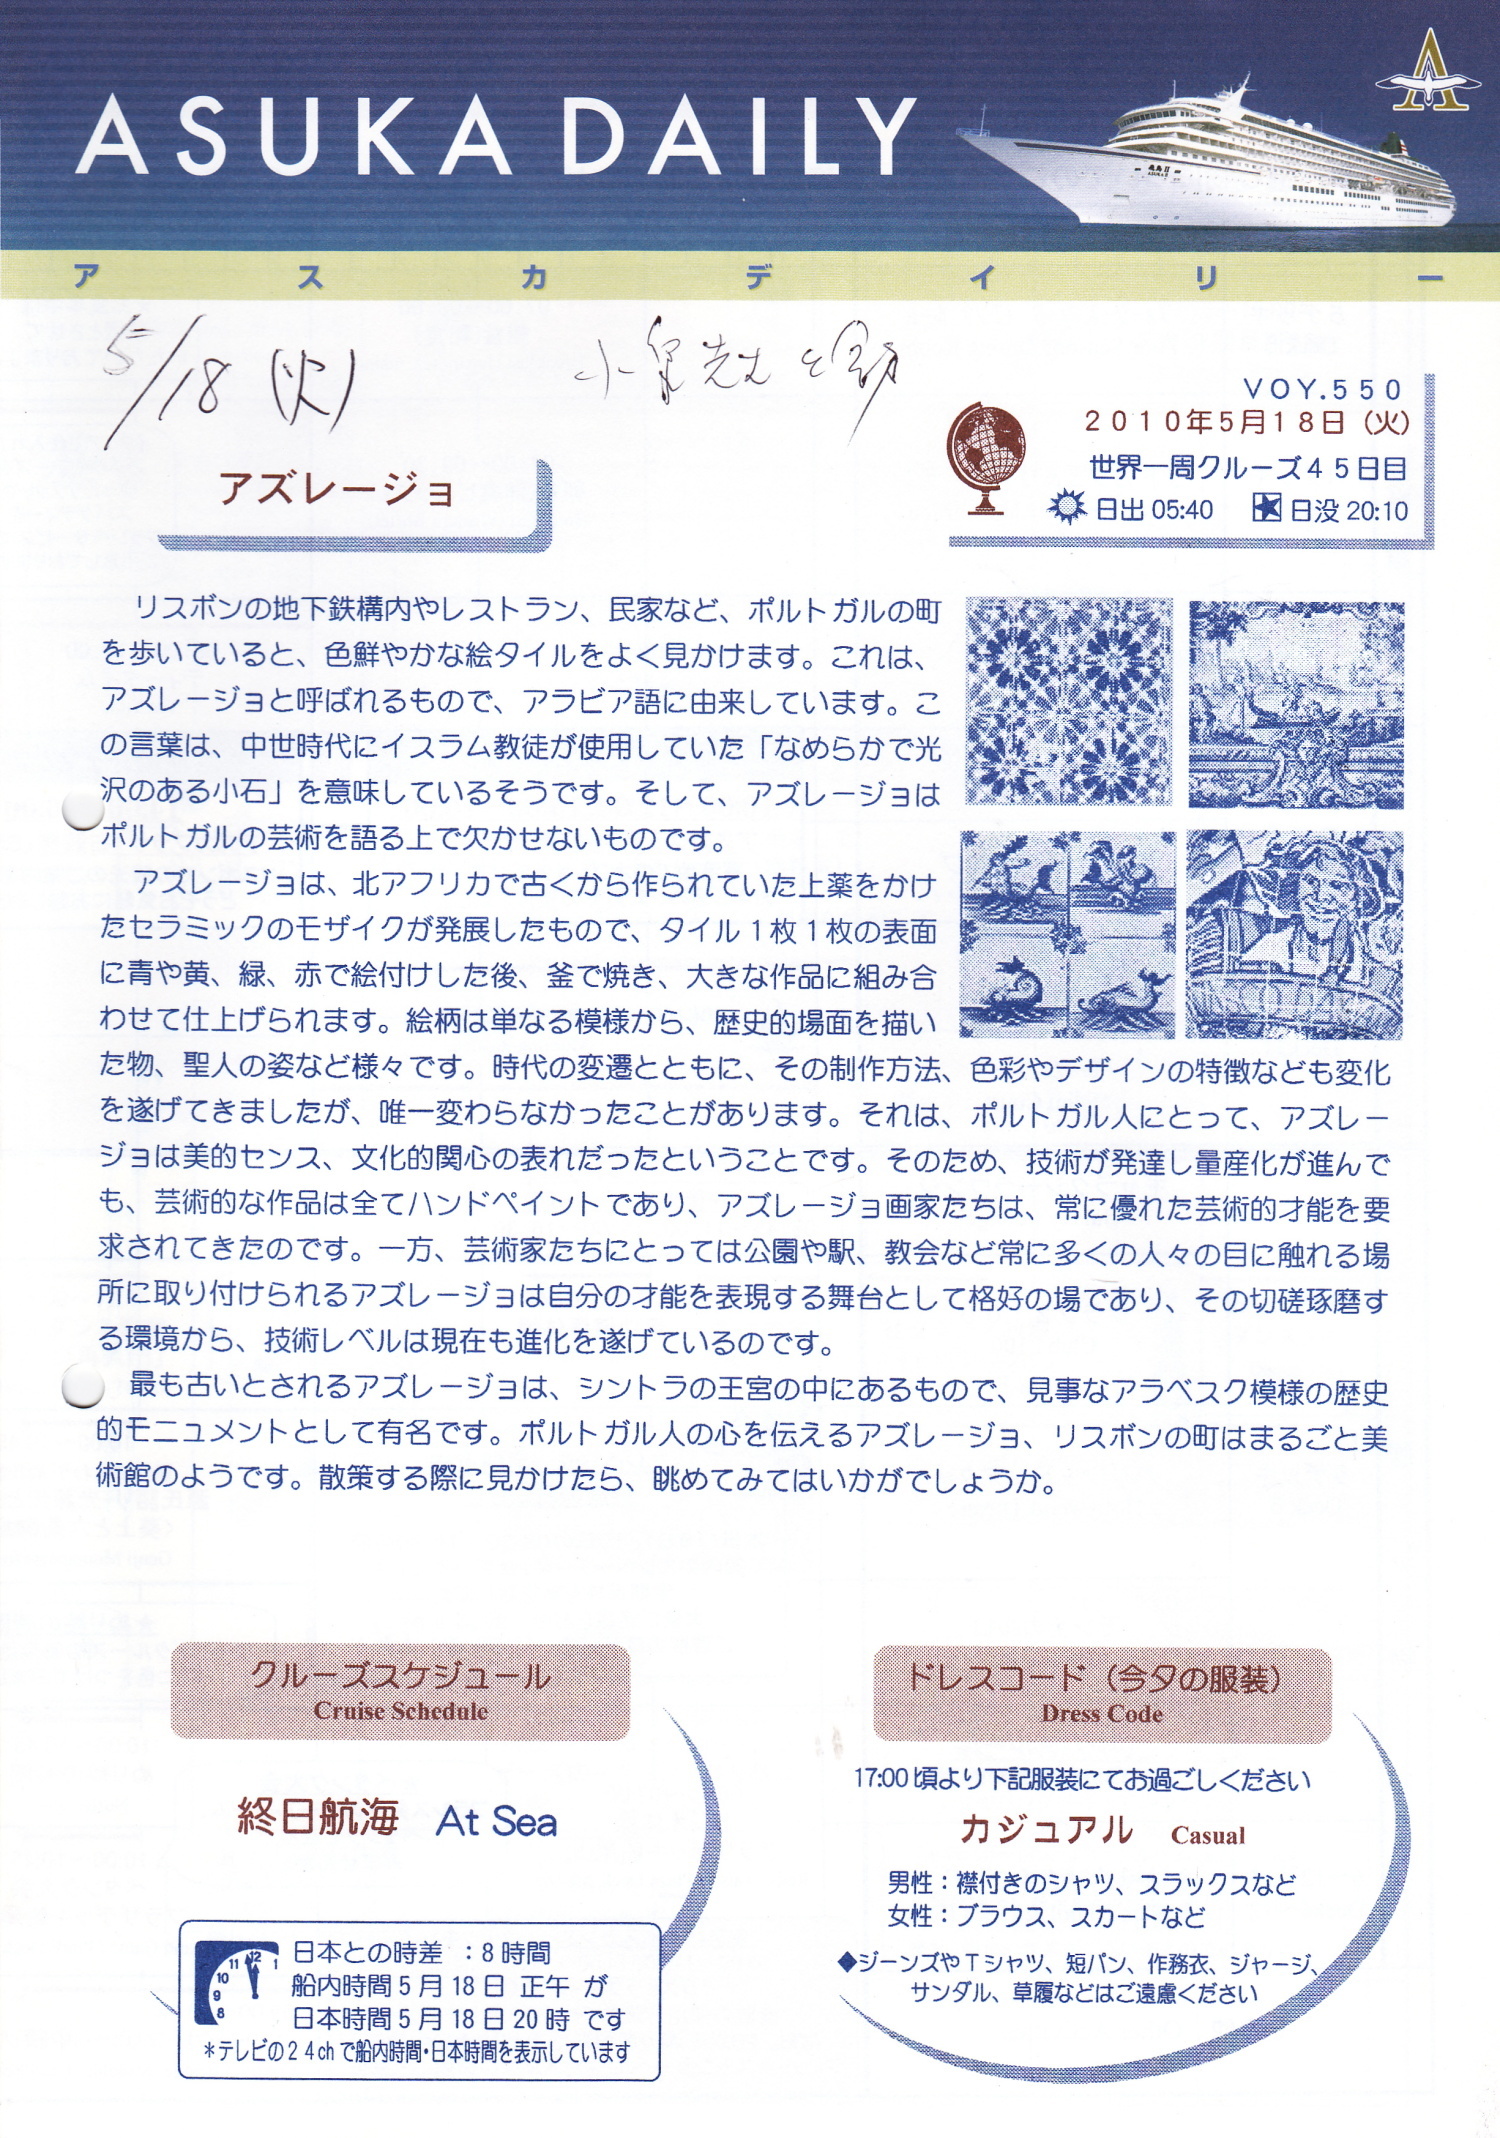 ASUKA DAILY
アスカデイリー
5/18 (火)
VOY.550
2010年5月18日（火）
世界一周クルーズ45日目
日出 05:40 日没 20:10
アズレージョ
リスボンの地下鉄構内やレストラン、民家など、ポルトガルの町
を歩いていると、色鮮やかな絵タイルをよく見かけます。これは、
アズレージョと呼ばれるもので、アラビア語に由来しています。こ
の言葉は、中世時代にイスラム教徒が使用していた「なめらかで光
沢のある小石」を意味しているそうです。そして、アズレージョは
ポルトガルの芸術を語る上で欠かせないものです。
アズレージョは、北アフリカで古くから作られていた上薬をかけ
たセラミックのモザイクが発展したもので、タイル1枚1枚の表面
に青や黄、緑、赤で絵付けした後、釜で焼き、大きな作品に組み合
わせて仕上げられます。絵柄は単なる模様から、歴史的場面を描い
た物、聖人の姿など様々です。時代の変遷とともに、その制作方法、色彩やデザインの特徴なども変化
を遂げてきましたが、唯一変わらなかったことがあります。それは、ポルトガル人にとって、アズレー
ジョは美的センス、文化的関心の表れだったということです。そのため、技術が発達し量産化が進んで
も、芸術的な作品は全てハンドペイントであり、アズレージョ画家たちは、常に優れた芸術的才能を要
求されてきたのです。一方、芸術家たちにとっては公園や駅、教会など常に多くの人々の目に触れる場
所に取り付けられるアズレージョは自分の才能を表現する舞台として格好の場であり、その切磋琢磨す
る環境から、技術レベルは現在も進化を遂げているのです。
最も古いとされるアズレージョは、シントラの王宮の中にあるもので、見事なアラベスク模様の歴史
的モニュメントとして有名です。ポルトガル人の心を伝えるアズレージョ、リスボンの町はまるごと美
術館のようです。散策する際に見かけたら、眺めてみてはいかがでしょうか。
クルーズスケジュール
Cruise Schedule
終日航海 At Sea
日本との時差 ：8時間
船内時間5月18日 正午 が
日本時間5月18日20時 です
＊テレビの24chで船内時間・日本時間を表示しています
ドレスコード（今夕の服装）
Dress Code
17:00頃より下記服装にてお過ごしください
カジュアル Casual
男性：襟付きのシャツ、スラックスなど
女性：ブラウス、スカートなど
◆ジーンズやTシャツ、短パン、作務衣、ジャージ、
サンダル、草履などはご遠慮ください